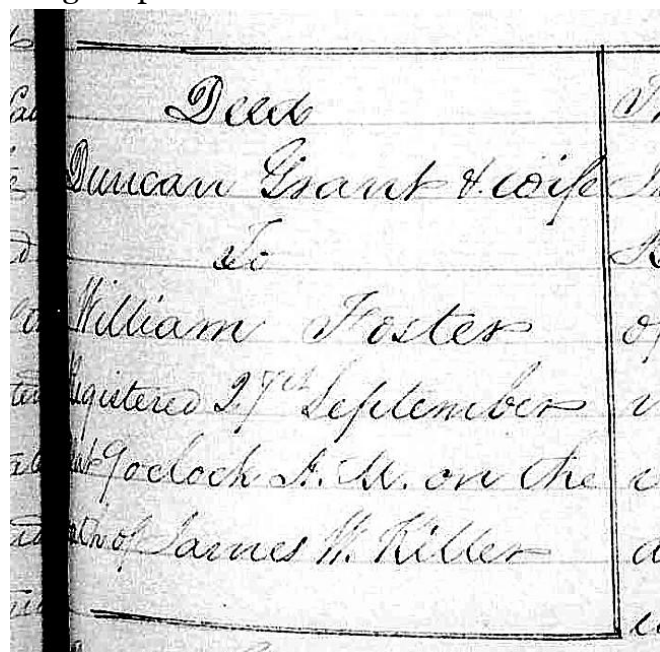 Deed
Duncan Grant & wife
To
William Foster
Registered 27th September
at 9 oclock A. M. on the
oath of James W. Killer